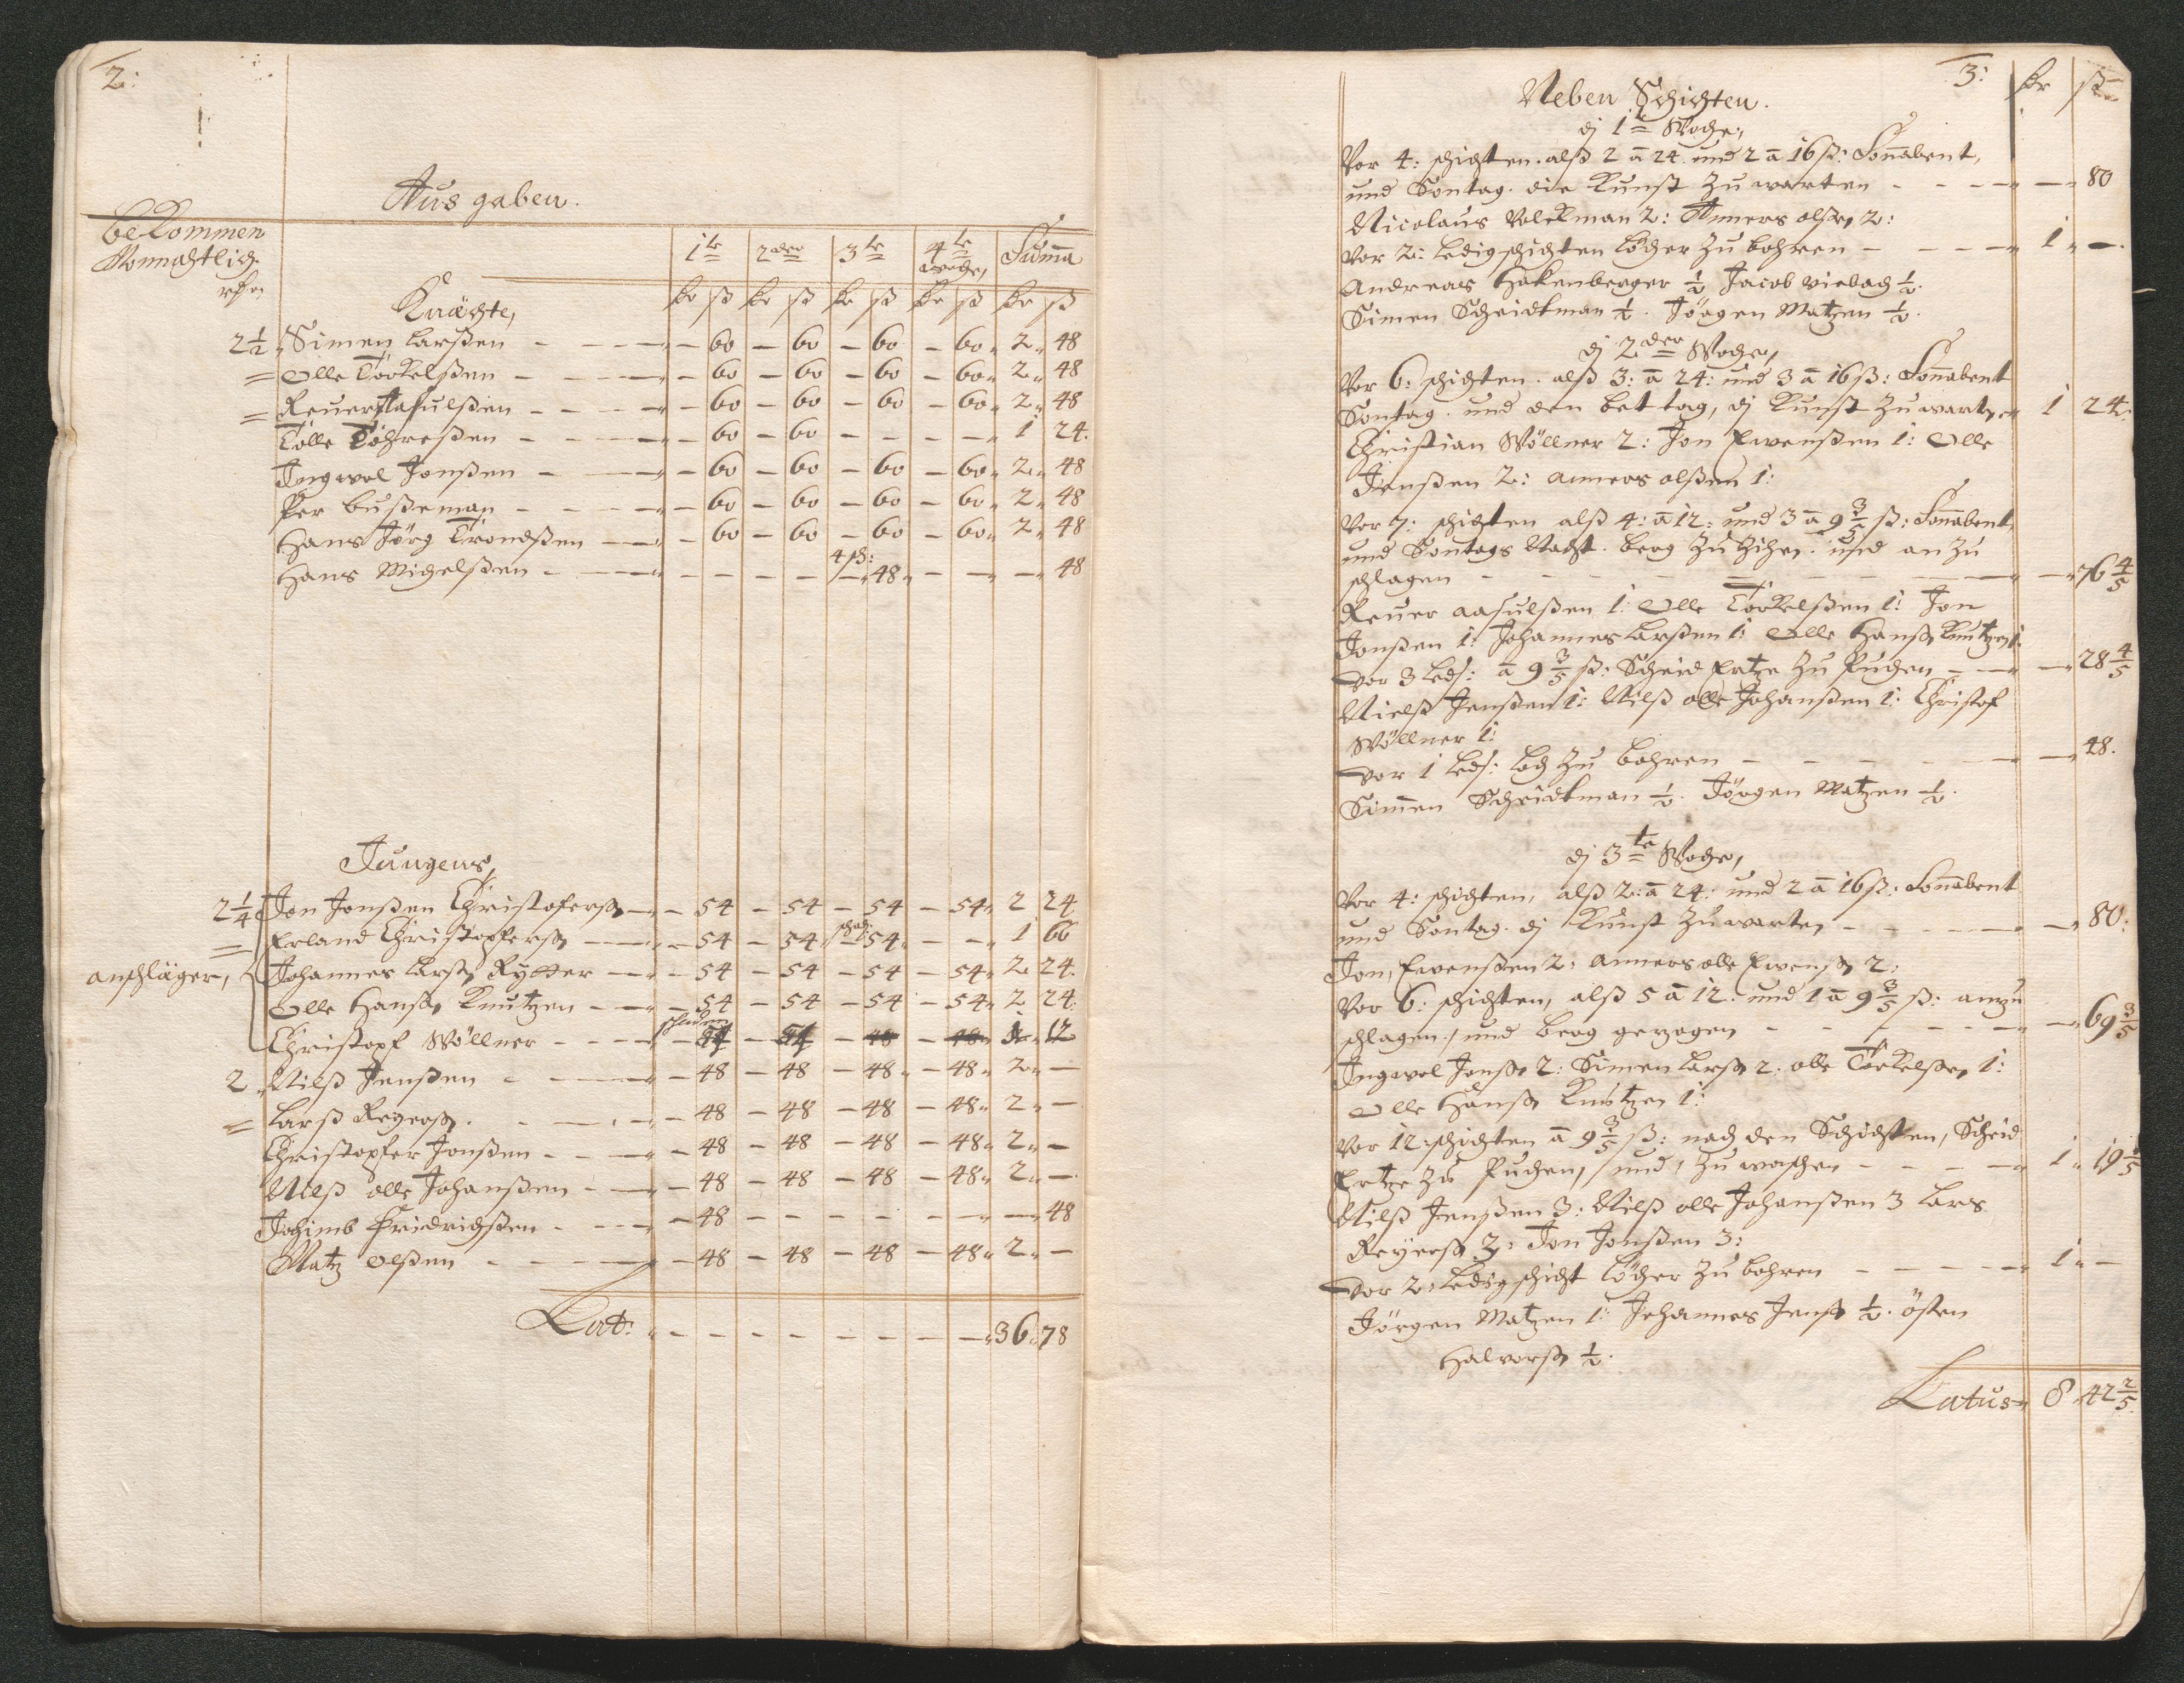 2:
Aus gaben.
beKommen
Monnahtlich
rthr
1te 2der 3te 4te Woche, Suma
Knächte,
Rr ß Rr ß Rr ß Rr ß Rr ß
2 1/2 Simen Larßen - - - - 60 - 60 - 60 - 60 2 48
= Olle Torkelßen - - - - 60 - 60 - 60 - 60 2 48
= Reuer Aasulßen - - - - 60 - 60 - 60 - 60 2 48
Tölle Töhreßen - - - - 60 - 60 - - - - 1 24.
Ingwol Jonßen - - - 60 - 60 - 60 - 60 2 48
Per Bußeman - - - - 60 - 60 - 60 - 60 2 48
Hans Jörg Trondßen - - 60 - 60 - 60 - 60 2 48
4 sch:
Hans Migelßen - - - - - - - - 48 - - - 48
Jungens,
2 1/4 Jon Jonßen Christoferß - - 54 - 54 - 54 - 54 2 24
= Erland Christopferß - - 54 - 54 - 54 - - 1 66
anschläger, Johannes Larß Rytter - - 54 - 54 - 54 - 54 2 24.
Olle Hanß Knutzen - - 54 - 54 - 54 - 54 2 24:
Christopf Wöllner - - - 54 - 54 - 48 - 48 1 12
2 Nilß Jenßen - - - 48 - 48 - 48 - 48 2 -
= Larß Reyerß. - - - 48 - 48 - 48 - 48 2 -
Christopfer Jonßen - - - 48 - 48 - 48 - 48 2 -
Nilß olle Johanßen - - 48 - 48 - 48 - 48 2 -
Jochimb Friedrichßen - - - 48 - - - - - - - 48
Matz Olßen - - - 48 - 48 - 48 - 48 2 -
Lat: - - - - - - - - 36 78
3:
Rr ß
Neben Schichten.
dj 1te Woche,
Vor 4: schichten. alß 2 a 24. und 2 a 16 ß: Sonabent,
und Sontag. die Kunst zu warten - - - - - 80
Nicolaus Volckman 2: Anners olßen 2:
Vor 2: Ledigschichten Löcher zu bohren - - - - 1 -
Andreas Hakenberger 1/2 Jacob Viebach 1/2.
Simen Scheidtman 1/2. Jörgen Matzen 1/2.
dj 2der Woche,
Vor 6: schichten. alß 3: a 24: und 3 a 16 ß: Sonabent
Sontag. und den bet tag, dj Kunst zu warten 1 24:
Christian Wöllner 2: Jon Ewenßen 1: Olle
Jenßen 2: anners olßen 1:
Vor 7: schichten alß 4: a 12: und 3 a 9 3/5 ß: Sonabent,
und Sontags Nacht. berg zu zihen. und an zu
schlagen - - - - - - - - 76 4/5
Reuer aasulßen 1: Olle Torkelßen 1: Jon
Jonßen 1: Johannes Larßen 1: Olle Hanß Knutzen 1:
Vor 3 Leds: a 9 3/5 ß: Scheid Ertze zu Puchen - - - 28 4/5
Nielß Jenßen 1: Nilß olle Johanßen 1: Christof
Wöllner 1:
Vor 1 Leds: Loch zu bohren - - - - - - 48.
Simen Scheidtman 1/2. Jörgen Matzen 1/2.
dj 3te Woche,
Vor 4: schichten, alß 2: a 24: und 2 a 16 ß: Sonabent
und Sontag. dj Kunst zu warten - - - - - 80:
Jon, Ewenßen 2: anners olle Ewenß 2:
Vor 6: schichten, alß 5 a 12: und 1 a 9 3/5 ß: anzu
schlagen, und berg gezogen - - - - - - 69 3/5
Ingwol Jonß 2: Simen Larß 2. olle Torkelßen 1:
Olle Hanß Knutzen 1:
Vor 12: schichten a 9 3/5 ß: nach den Schichten, Scheid
Ertze zu Puchen, und, zu waschen - - - - 1 19 1/5
Nilß Jenßen 3: Nilß olle Johanßen 3 Lars
Reyerß 3: Jon Jonßen 3:
Vor 2: Ledigschicht Löcher zu bohren - - - - 1 -
Jörgen Matzen 1: Johannes Jenß 1/2. östen
Halvorß 1/2.
Latus 8 42 2/5